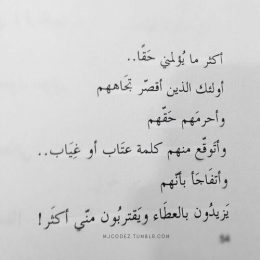 أكثر ما يُؤلمني حَقًا..
أولئك الذين أقصّر تجَاههم
وأحرمَهم حَقّهم
وأتَوقّع منهم كلمة عتَاب أو غِيَاب..
وأتفَاجَأ بأنّهم
يَزيدُون بالعطَاء ويَقتربُون منّي أكثَر!
MJCODEZ.TUMBLR.COM